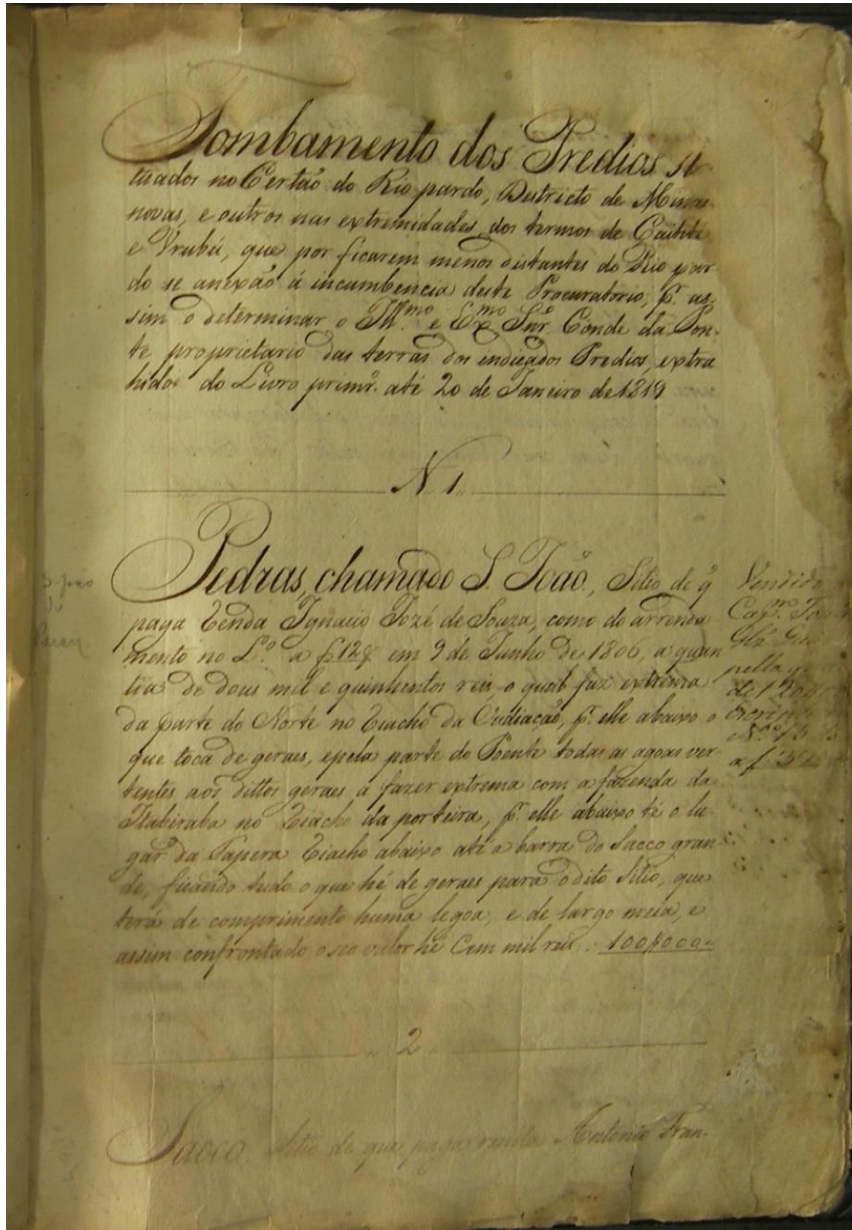 Tombamento dos Predios si-
tuados no Certão do Rio pardo, Districto de Minas
novas, e outros nas extremidades, dos termos de Caitité
e Vrubú, que por ficarem menos distantes do Rio par
do se anexão á incumbencia deste Procuratorio, pr. as
sim o determinar o Illmo. e Exmo. Snr. Conde da Pon-
te proprietario das terras dos indicados Predios, extra
hidos do Livro primr. até 20 de Janeiro de 1819
N 1
Pedras, chamado S. João, Sitio de q
paga Renda Ignacio Jozé de Souza, como do arrenda
mento no Lo. a f 128 em 9 de Junho de 1806, a quan
tia de dous mil e quinhentos reis o qual faz extrema
da parte do Norte no Riacho da pr. elle abaixo o
que toca de geraes, e pela parte do Poente todas as agoas ver
tentes aos dittos geraes a fazer extrema com a fazenda da
Itabiraba no Riacho da porteira, pr. elle abaixo té o lu
gar da Tapera Riacho abaixo até a barra do Sacco gran
de, ficando tudo o que hé de geraes para o dito Sitio, que
terá de comprimento huma legoa, e de largo meia, e
assim confrontado o seo valor hé Cem mil reis 100$000
Vendido
Capm.
pella
de 120
2
Sacco Sitio de que paga renda Antonio Fran-